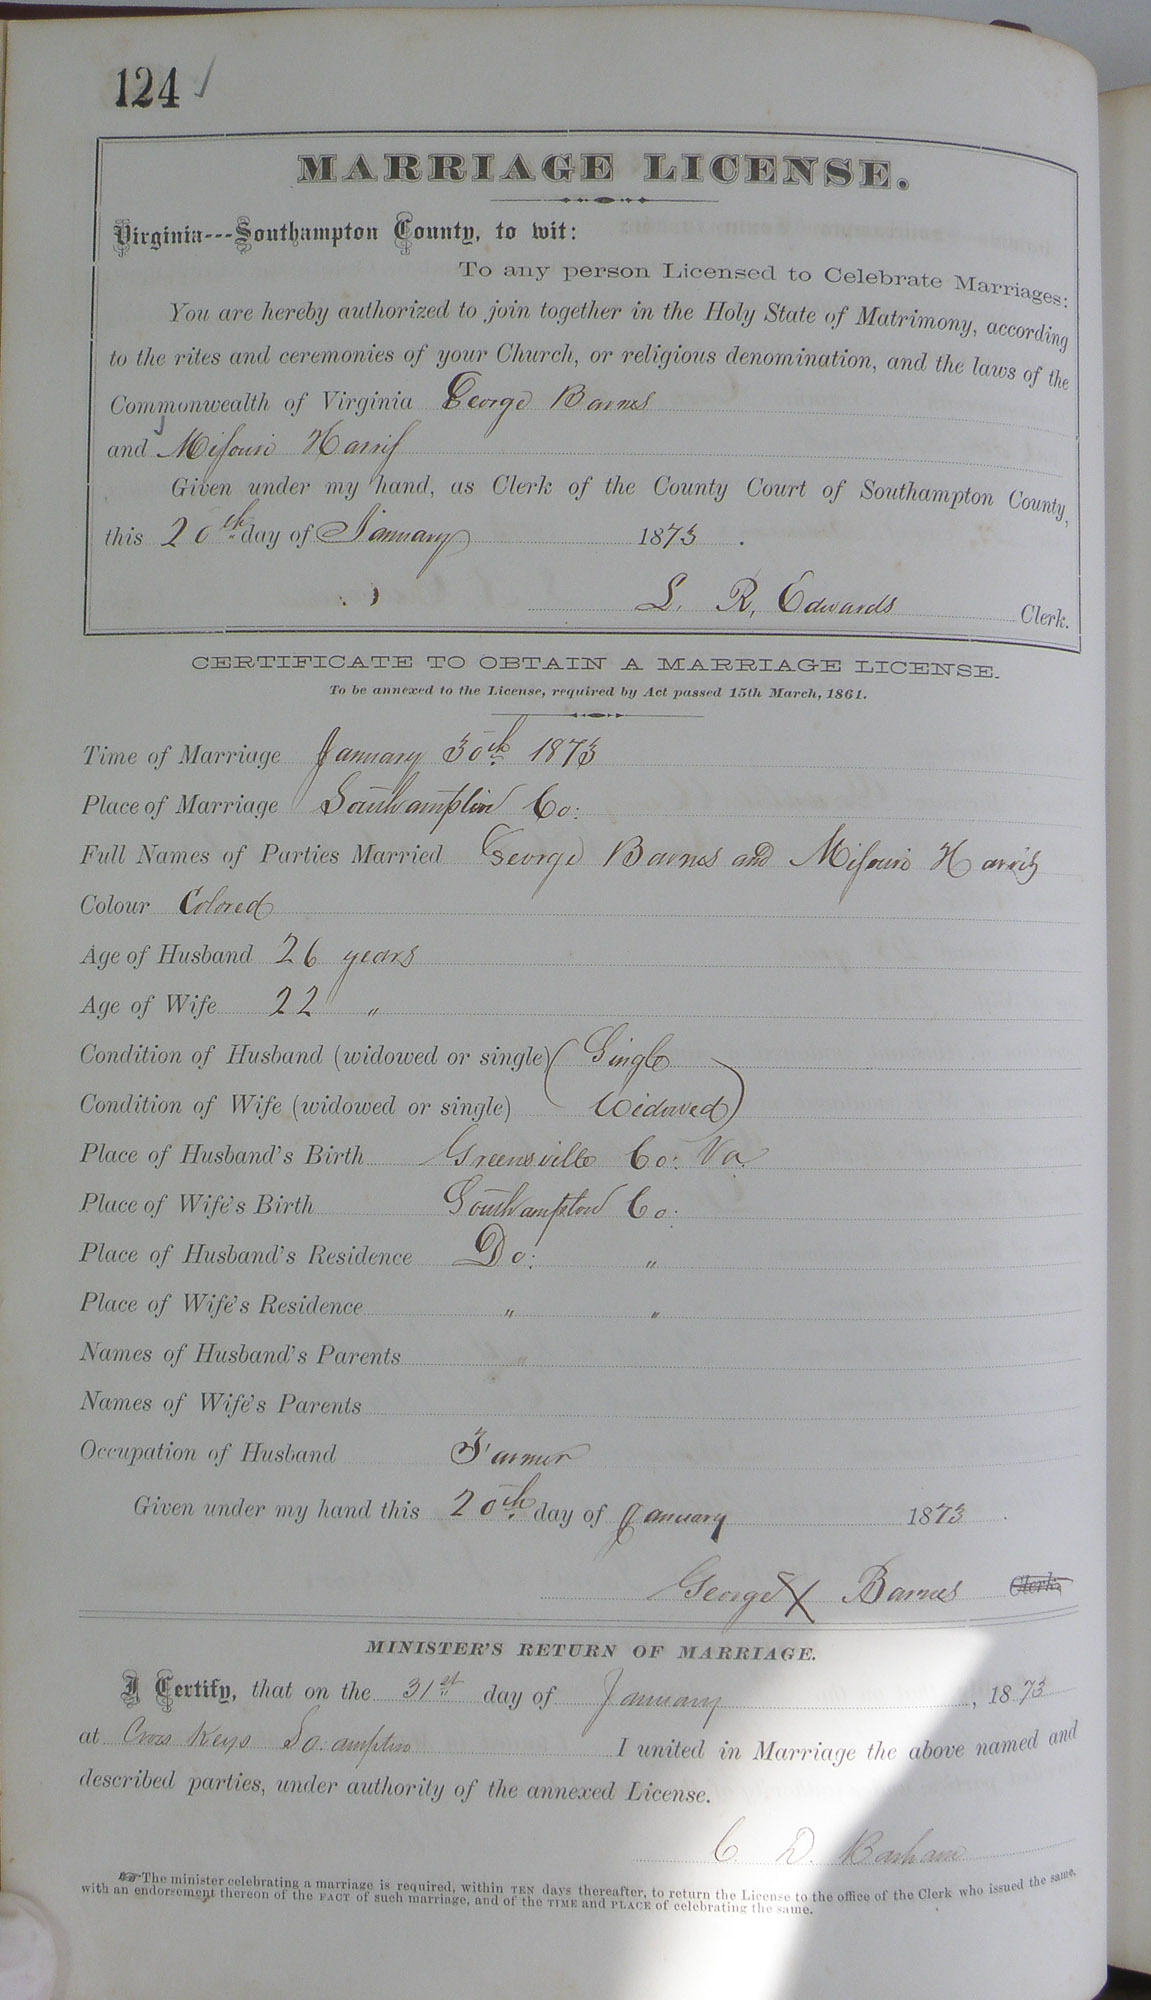 124
MARRIAGE LICENSE.
Virginia---Southampton County, to wit:
To any person Licensed to Celebrate Marriages:
You are hereby authorized to join together in the Holy State of Matrimony, according
to the rites and ceremonies of your Church, or religious denomination, and the laws of the
Commonwealth of Virginia George Barnes
and Missouri Harris
Given under my hand, as Clerk of the County Court of Southampton County,
this 20th day of January 1873.
L. R. Edwards Clerk.
CERTIFICATE TO OBTAIN A MARRIAGE LICENSE.
To be annexed to the License, required by Act passed 15th March, 1861.
Time of Marriage January 30th 1873
Place of Marriage Southampton Co:
Full Names of Parties Married George Barnes and Missouri Harris
Colour Colored
Age of Husband 26 years
Age of Wife 22 "
Condition of Husband (widowed or single) ( Single
Condition of Wife (widowed or single) Widowed )
Place of Husband's Birth Greensville Co: Va.
Place of Wife's Birth Southampton Co:
Place of Husband's Residence Do: "
Place of Wife's Residence " "
Names of Husband's Parents
Names of Wife's Parents
Occupation of Husband Farmer
Given under my hand this 20th day of January 1873.
George X Barnes Clerk.
MINISTER'S RETURN OF MARRIAGE.
I Certify, that on the 31st day of January, 1873
at Cross Keys So:ampton I united in Marriage the above named and
described parties, under authority of the annexed License.
C. D. Barham
☞The minister celebrating a marriage is required, within TEN days thereafter, to return the License to the office of the Clerk who issued the same,
with an endorsement thereon of the FACT of such marriage, and of the TIME and PLACE of celebrating the same.